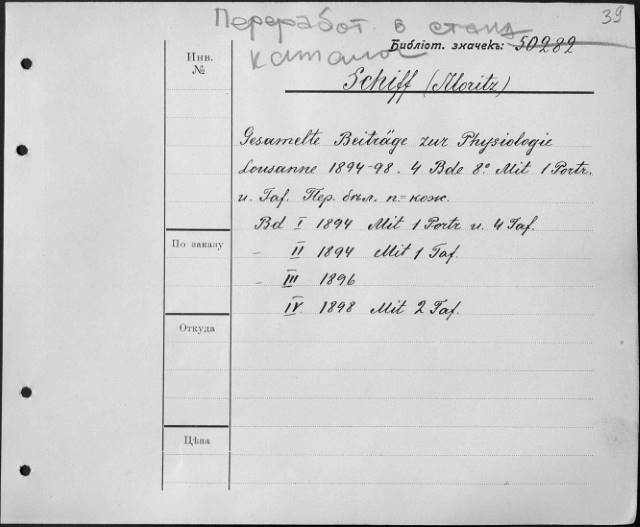 39
Переработ. в станд.
каталог
Библіот. значекъ: 50282
Инв.
№
Schiff (Moritz)
Gesamelte Beiträge zur Physiologie
Lousanne 1894-98. 4 Bde 8° Mit 1 Portr.
u. Taf. Пер. бѣл. п=кож.
Bd I 1894 Mit 1 Portr u. 4 Taf.
По заказу
- II 1894 Mit 1 Taf.
- III 1896
IV. 1898 Mit 2 Taf.
Откуда
Цѣна